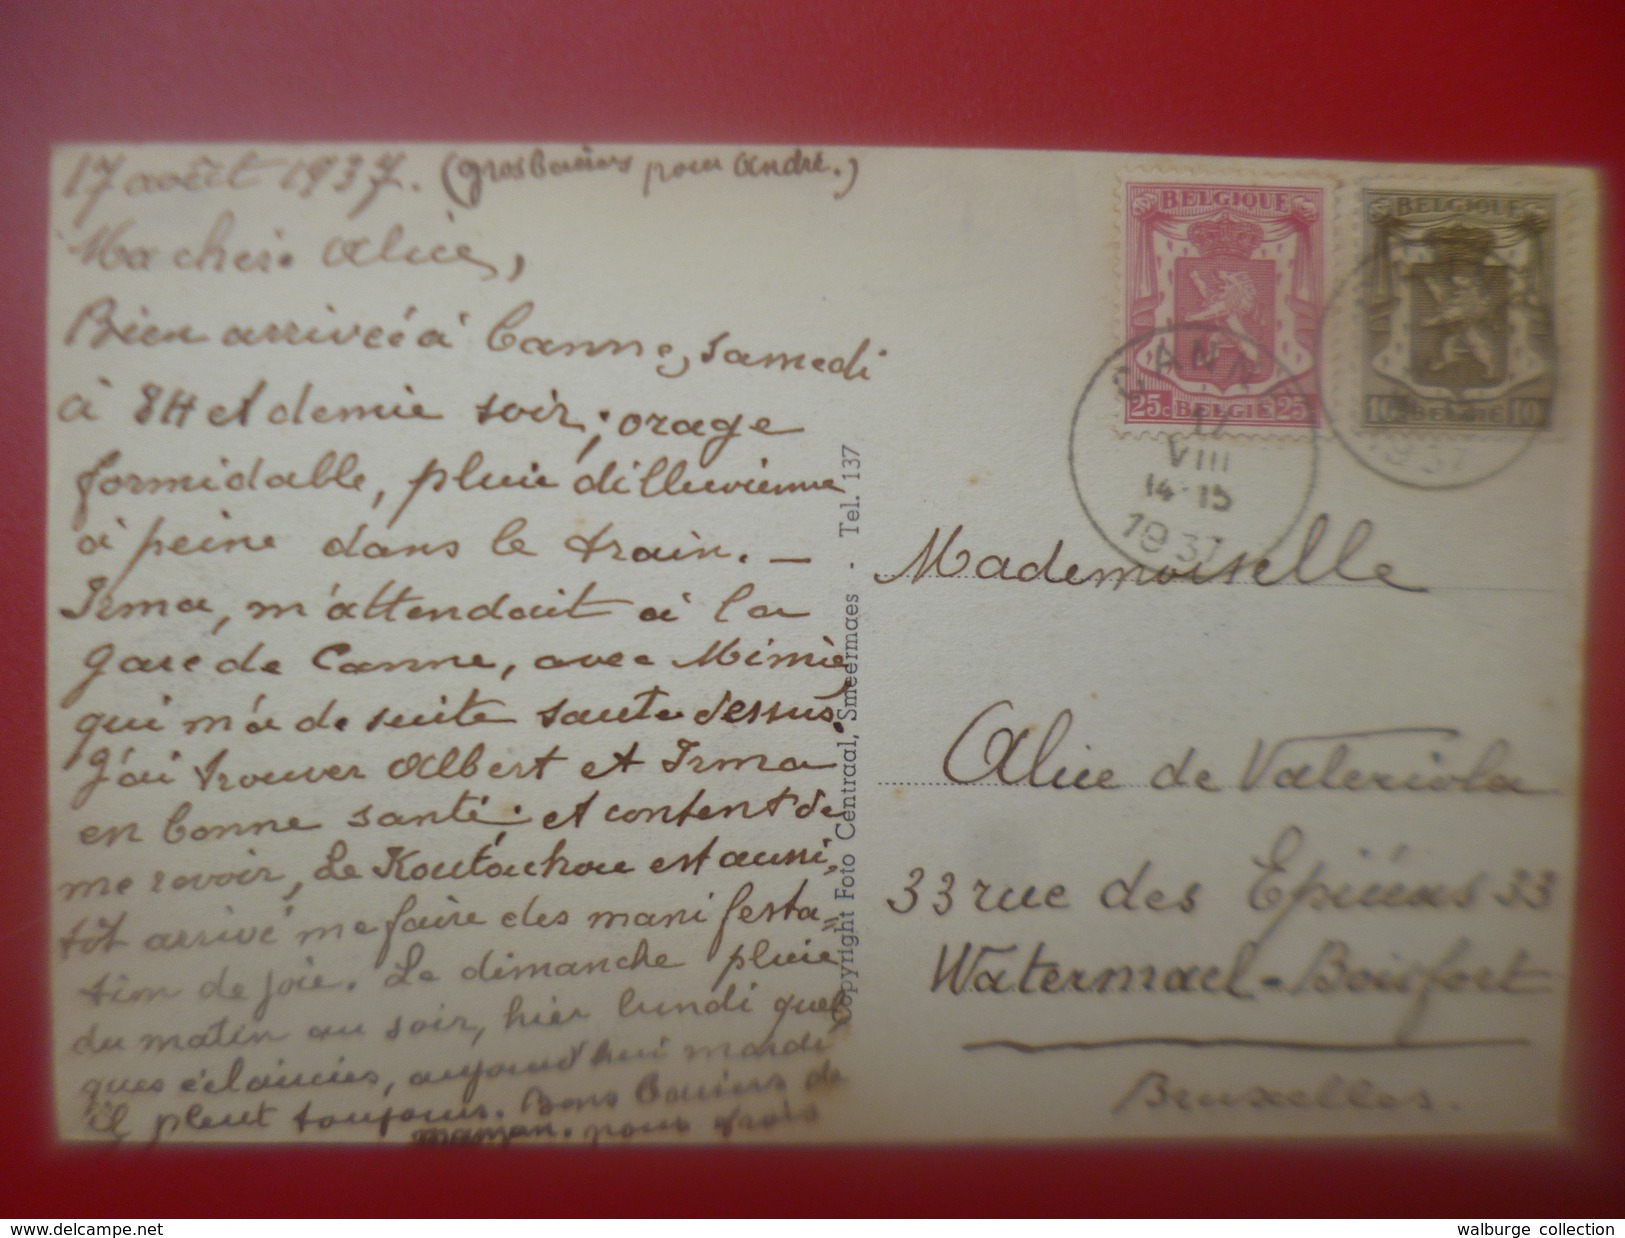 17 août 1937. (gros baisers pour André.)
Ma chère Alice,
Bien arrivée à Canne, samedi
à 8H et demie soir; orage
formidable, pluie dilluvienne
à peine dans le train. —
Irma, m'attendait à la
gare de Canne, avec Mimie,
qui m'a de suite sauté dessus.
J'ai trouver Albert et Irma
en bonne santé, et content de
me revoir, Le Koutouchou est aussi,
tôt arrivé me faire des manifesta=
tion de joie. Le dimanche pluie
du matin au soir, hier lundi quel
ques éclaircies, aujourd'hui mardi
il pleut toujours. Bons baisers de
maman. pour trois
Copyright Foto Centraal, Smeermaes - Tel. 137
BELGIQUE
25c BELGIE 25c
BELGIQUE
10c BELGIE 10c
CANNE
17
VIII
14-15
1937
1937
Mademoiselle
Alice de Valeriola
33 rue des Epicéas 33
Watermael-Boisfort
Bruxelles.
www.delcampe.net
walburge collection